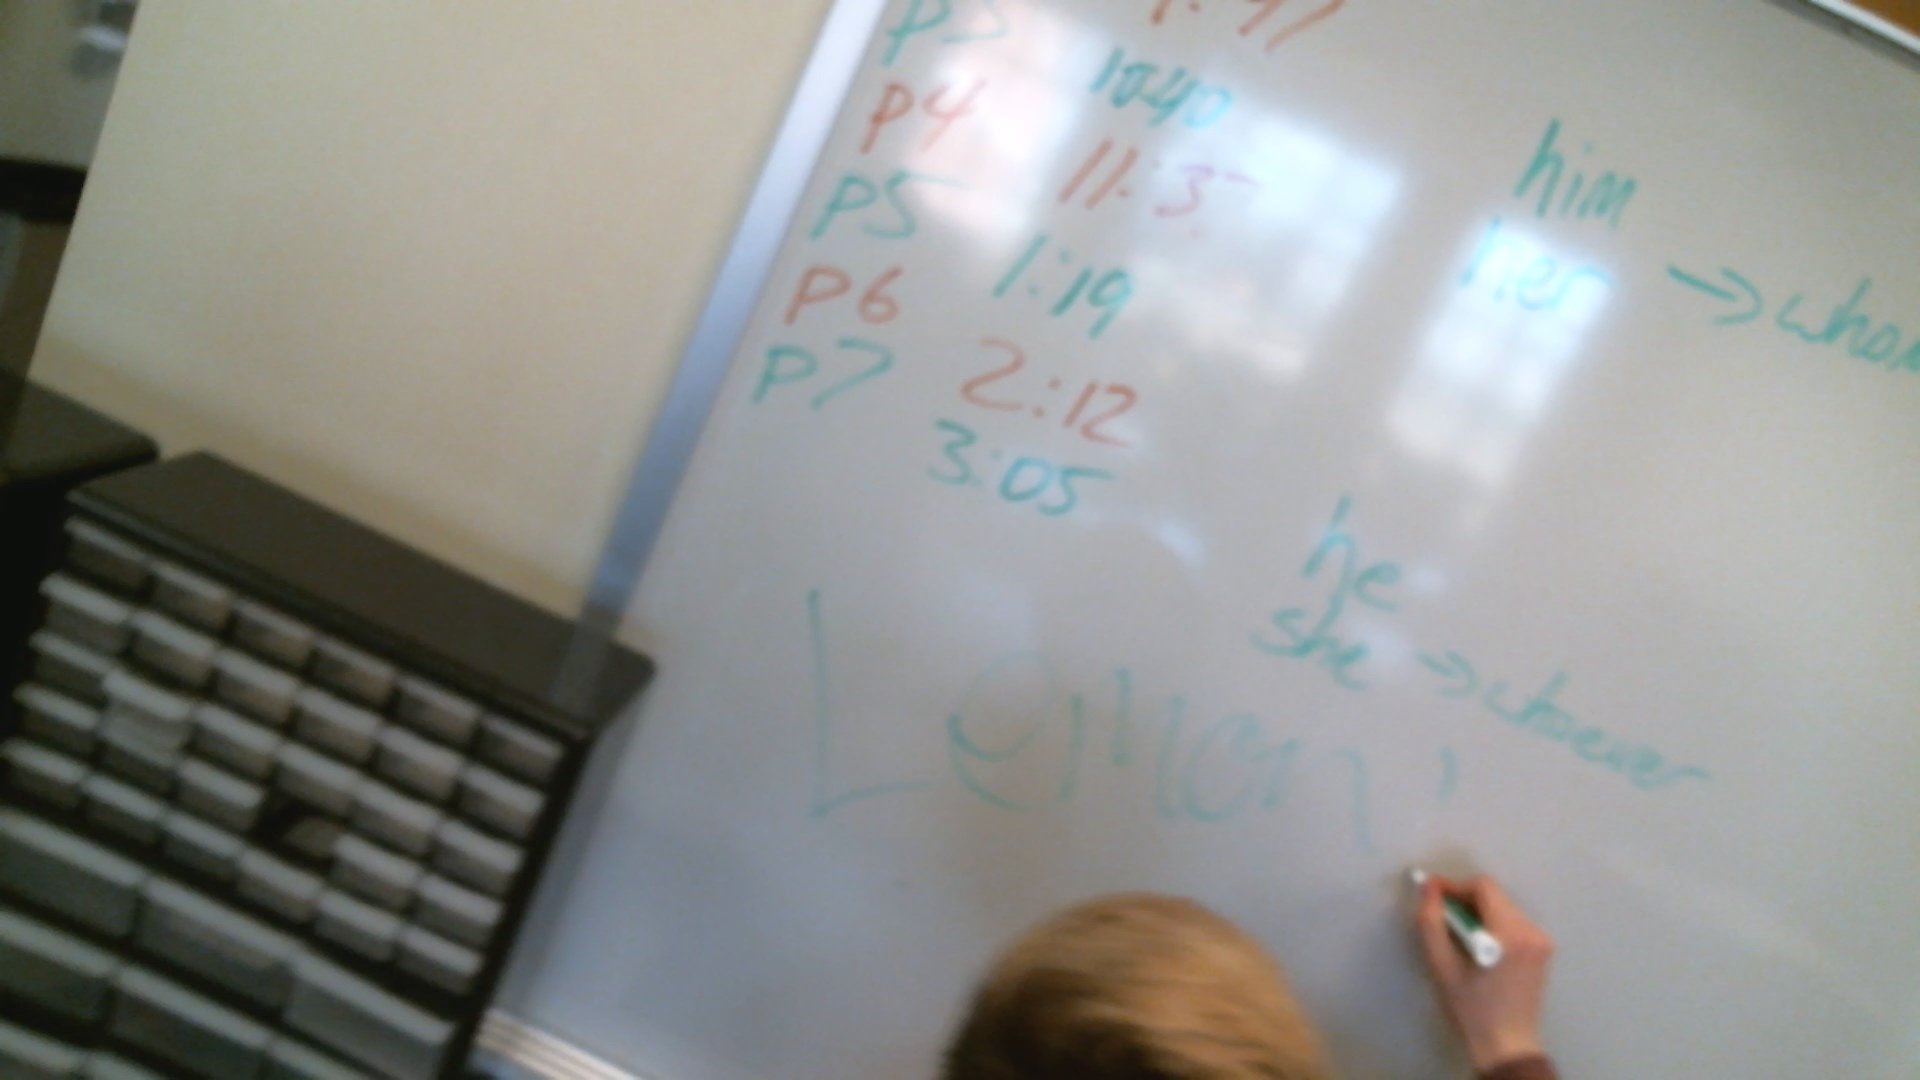 p3
p4 10:40
p5 11:3
p6 1:19
p7 2:12
3:05
him
her →
he
she → whoever
Lemon